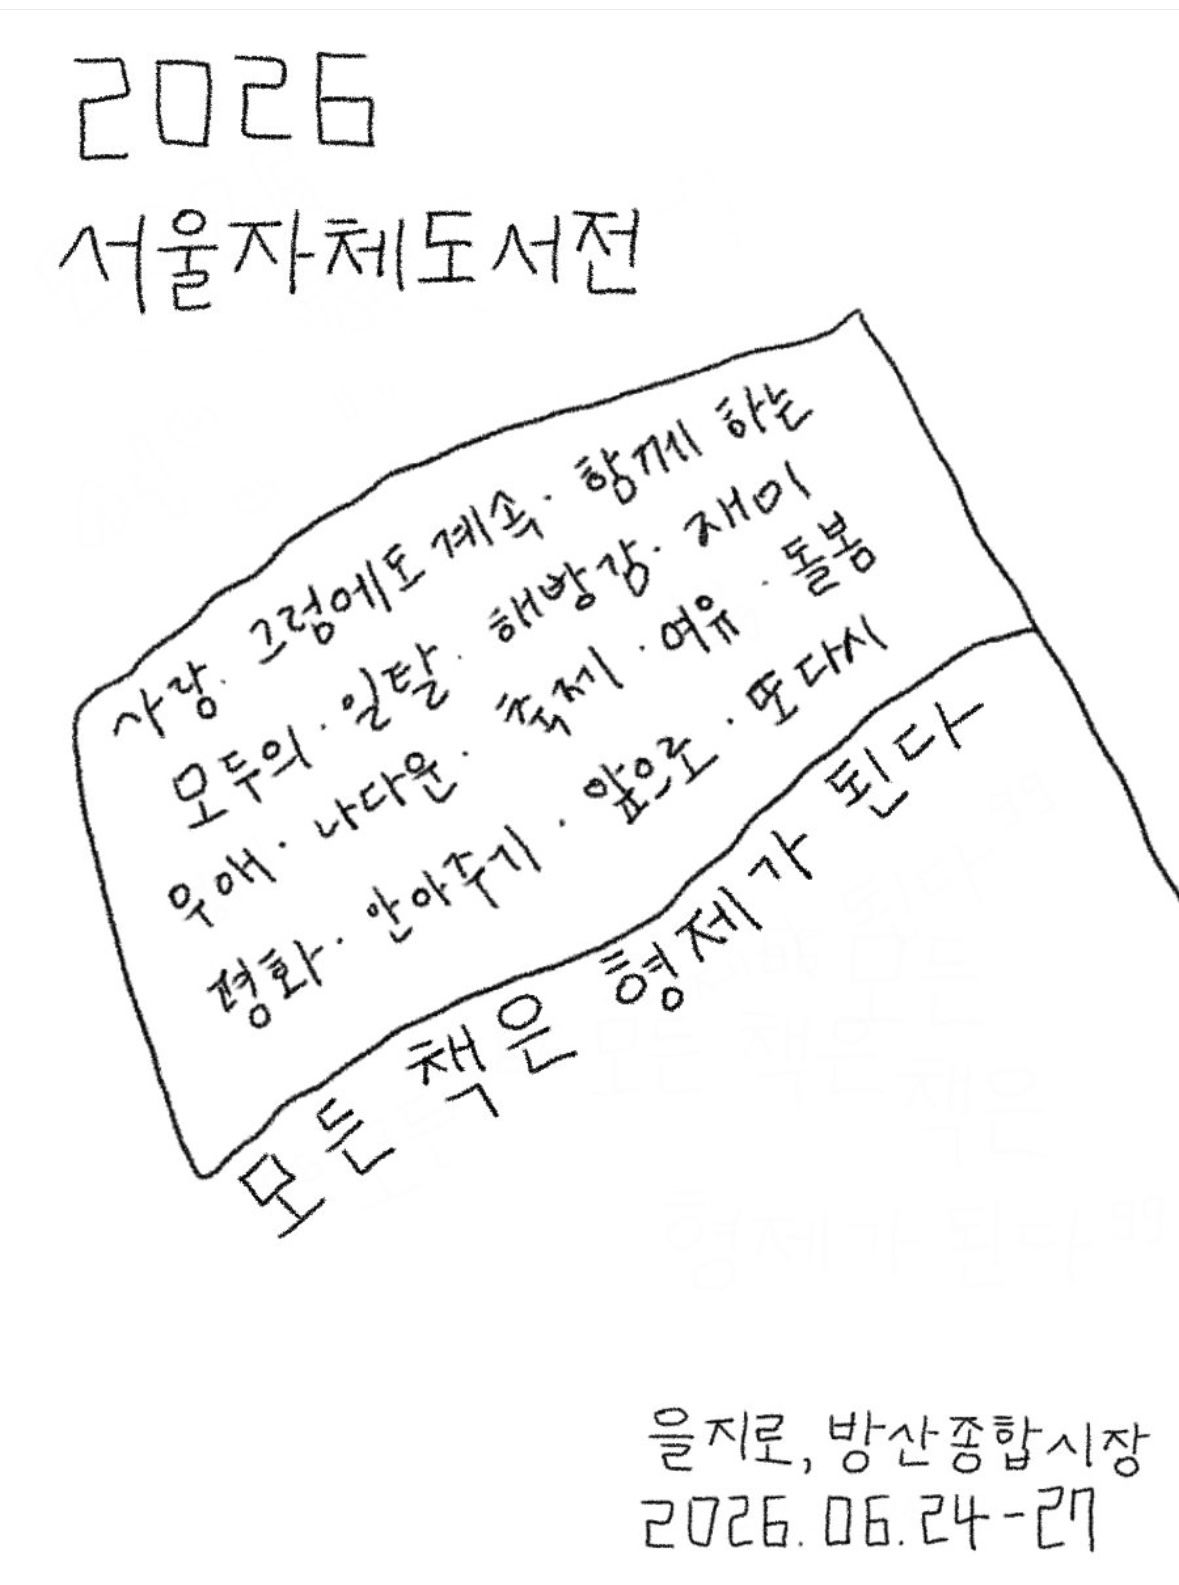 2026
서울자체도서전
사랑. 그럼에도 계속. 함께 하는
모두의. 일탈. 해방감. 재미
우애. 나다운. 축제. 여유. 돌봄
평화. 안아주기. 앞으로. 또다시
모든 책은 형제가 된다
을지로, 방산종합시장
2026. 06. 24-27